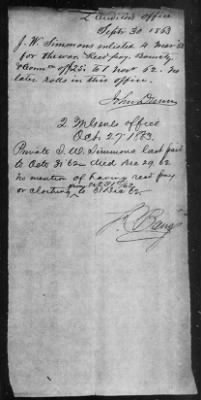 2 Auditors Office
Sept 30 1863
J. W. Simmons enlisted 4 Mar 62
for the war Recd pay Bounty
& Comm of $25 to 1 Nov 62. No
later rolls in this office.
John
2 office
Oct. 27 1863.
Private J. W. Simmons last paid
to Oct. 31 62 died Dec 29. 62
no mention of having recd pay
or clothing from Oct 31 62
to 31 Dec 62.